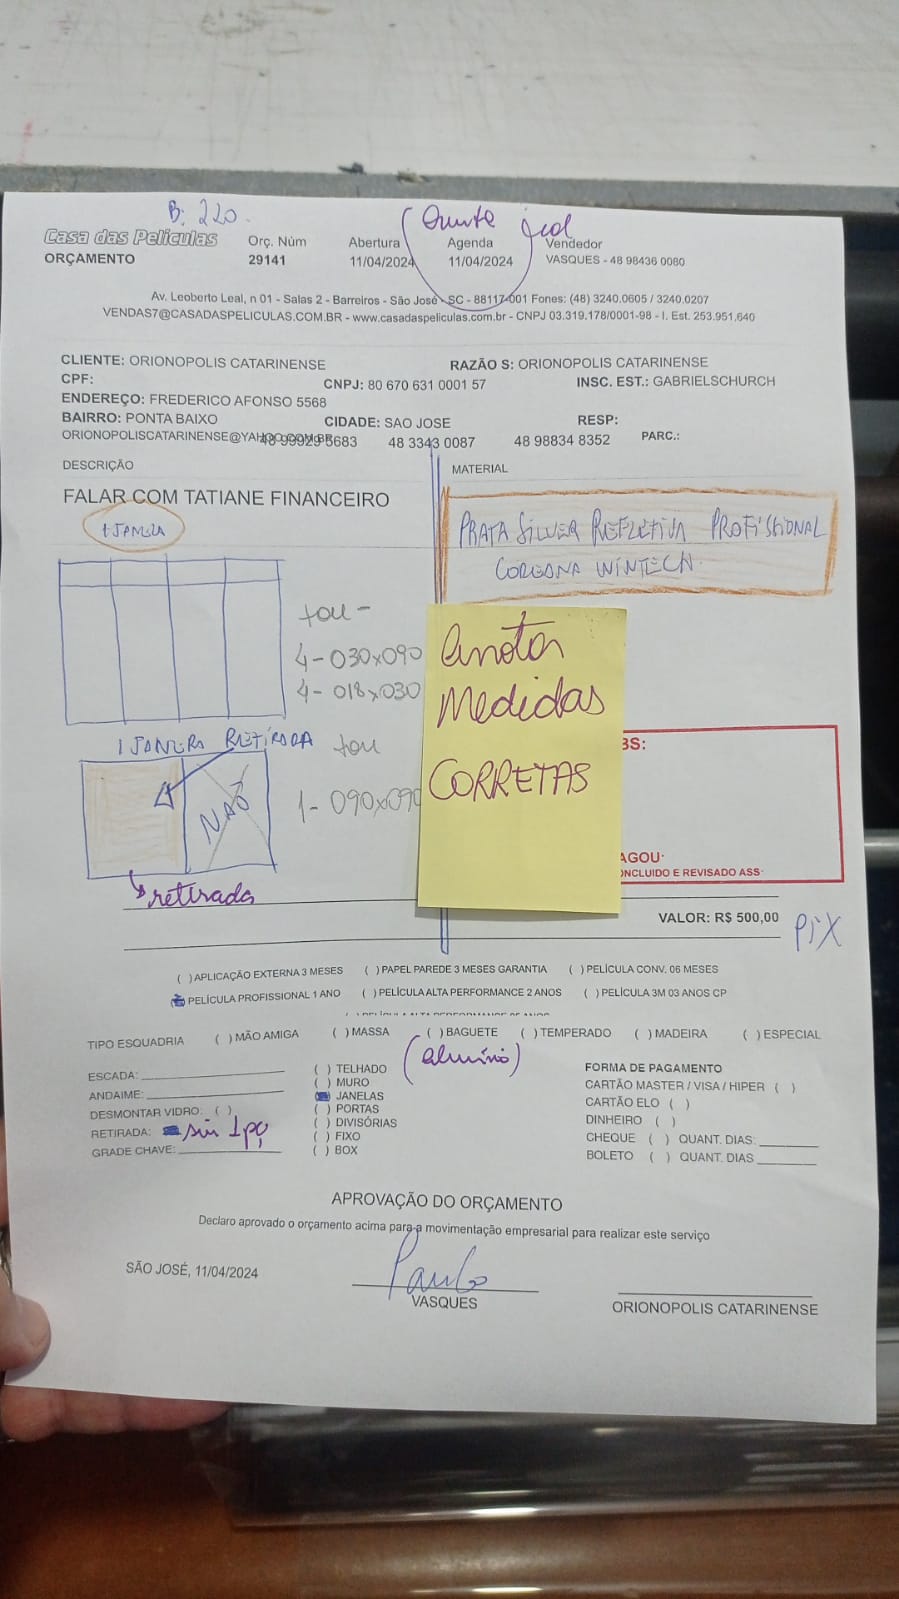 B: 220.
Casa das Películas
ORÇAMENTO
Orç. Núm
29141
Abertura
11/04/2024
Agenda
11/04/2024
Vendedor
VASQUES - 48 98436 0080
Av. Leoberto Leal, n 01 - Salas 2 - Barreiros - São José - SC - 88117-001 Fones: (48) 3240.0605 / 3240.0207
VENDAS7@CASADASPELICULAS.COM.BR - www.casadaspeliculas.com.br - CNPJ 03.319.178/0001-98 - I. Est. 253.951,640
CLIENTE: ORIONOPOLIS CATARINENSE RAZÃO S: ORIONOPOLIS CATARINENSE
CPF: CNPJ: 80 670 631 0001 57 INSC. EST.: GABRIELSCHURCH
ENDEREÇO: FREDERICO AFONSO 5568
BAIRRO: PONTA BAIXO CIDADE: SAO JOSE RESP:
ORIONOPOLISCATARINENSE@YAHOO.COM.BR 5683 48 3343 0087 48 98834 8352 PARC.:
DESCRIÇÃO MATERIAL
FALAR COM TATIANE FINANCEIRO
1 JANELA
PRATA SILVER REFLETIVA PROFISSIONAL
COREANA WINTECH.
4- 030x090
4- 018x030
Anotar
Medidas
CORRETAS
1 JANELA RETIRADA
NÃO
1- 090x090
retirada
BS:
AGOU
ONCLUIDO E REVISADO ASS
VALOR: R$ 500,00
PIX
( ) APLICAÇÃO EXTERNA 3 MESES ( ) PAPEL PAREDE 3 MESES GARANTIA ( ) PELÍCULA CONV. 06 MESES
PELÍCULA PROFISSIONAL 1 ANO ( ) PELÍCULA ALTA PERFORMANCE 2 ANOS ( ) PELÍCULA 3M 03 ANOS CP
TIPO ESQUADRIA ( ) MÃO AMIGA ( ) MASSA ( ) BAGUETE ( ) TEMPERADO ( ) MADEIRA ( ) ESPECIAL
(alumínio)
ESCADA:
ANDAIME:
DESMONTAR VIDRO: ( )
RETIRADA: sim 1 pç
GRADE CHAVE:
( ) TELHADO
( ) MURO
JANELAS
( ) PORTAS
( ) DIVISÓRIAS
( ) FIXO
( ) BOX
FORMA DE PAGAMENTO
CARTÃO MASTER / VISA / HIPER ( )
CARTÃO ELO ( )
DINHEIRO ( )
CHEQUE ( ) QUANT. DIAS:
BOLETO ( ) QUANT. DIAS
APROVAÇÃO DO ORÇAMENTO
Declaro aprovado o orçamento acima para a movimentação empresarial para realizar este serviço
SÃO JOSÉ, 11/04/2024
Paulo
VASQUES
ORIONOPOLIS CATARINENSE